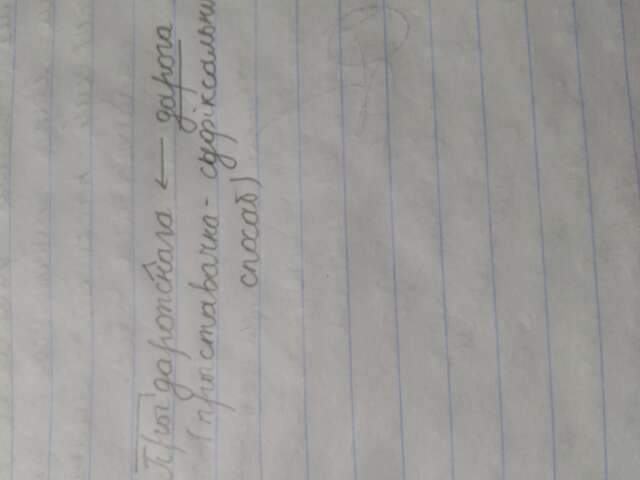 Прыдарожнага ← дарога
(прыставачна - суфіксальны
спосаб)